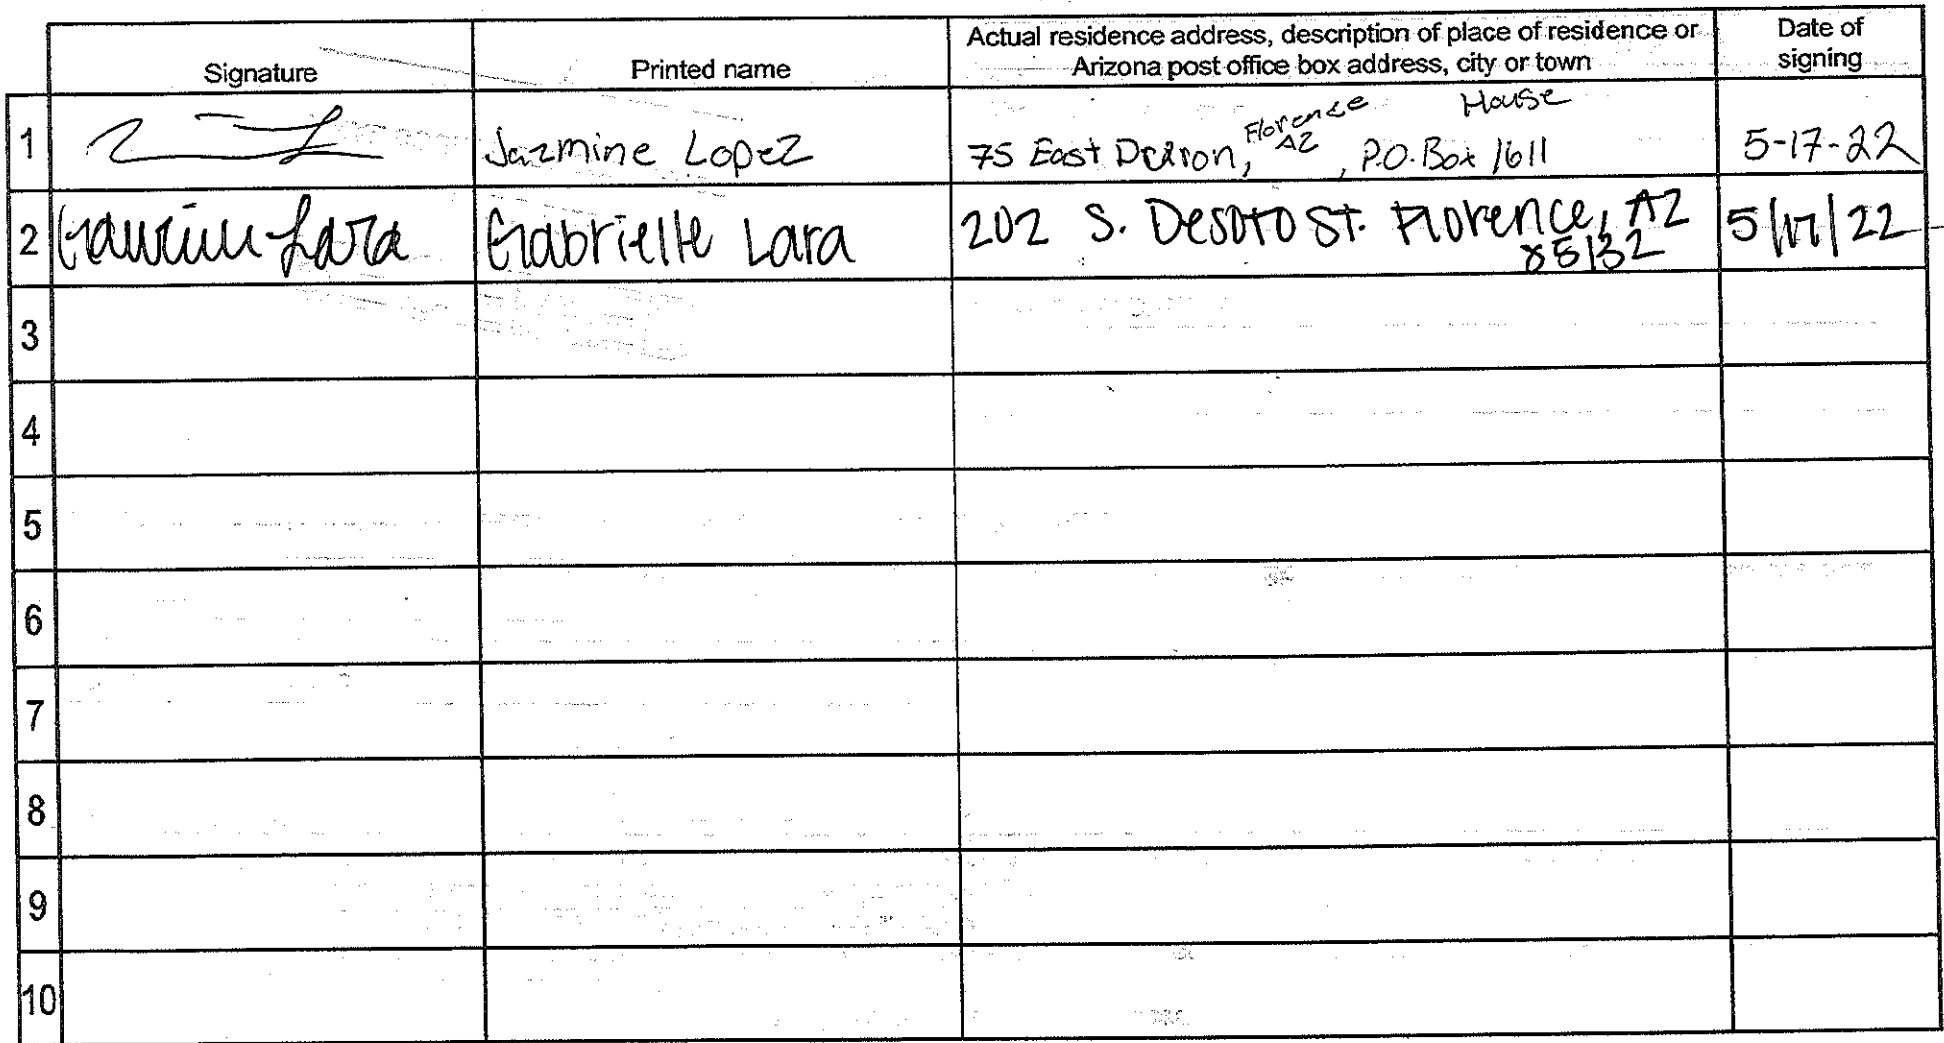 Signature
Printed name
Actual residence address, description of place of residence or
Arizona post office box address, city or town
Date of
signing
1 Jazmine Lopez 75 East Florence AZ, P.O. Box 1611 House 5-17-22
2 Gabrielle Lara 202 S. Desoto St. Florence, AZ 5/17/22
85132
3
4
5
6
7
8
9
10